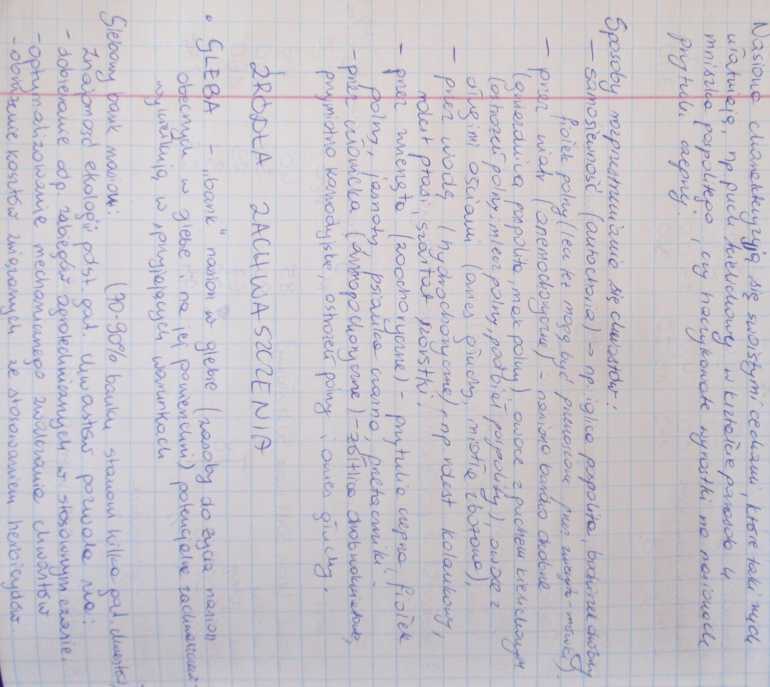 Nasiona charakteryzują się swoistymi cechami, które taki ruch
ułatwiają, np. puch kielichowy w kształcie parasola u
mniszka pospolitego, czy haczykowate wyrostki na nasionach
przytuli czepnej.
Sposoby rozprzestrzeniania się chwastów:
- samosiewność (autochoria) → np. iglica pospolita, bratek
fiołek polny (lecz te mogą być przenoszone przez zwierzęta - mrówki)
- przez wiatr (anemochoryczne) - nasiona bardzo drobne
(gwiazdnica pospolita, mak polny) owoce z puchem kielichowym
(ostrożeń polny, mlecz polny, podbiał pospolity), owoce z
długimi ościami (owies głuchy, miotła zbożowa),
- przez wodę (hydrochoryczne), np. rdest kolankowy,
rdest ptasi, szarłat szorstki,
- przez zwierzęta (zoochoryczne) - przytulia czepna, fiołek
polny, jasnoty, psianka czarna, przetaczniki -
- przez człowieka (antropochoryczne) - żółtlica drobnokwiatowa,
przymiotno kanadyjskie, ostrożeń polny i owies głuchy.
ŹRÓDŁA ZACHWASZCZENIA
• GLEBA - „bank" nasion w glebie (zasoby do życia nasion
obecnych w glebie i na jej powierzchni) potencjalne zachwaszczenie
w sprzyjających warunkach
Glebowy bank nasion: (70-90% banku stanowi kilka gat. chwastów)
Znajomość ekologii posz. gat. chwastów pozwala na:
- dobieranie odp. zabiegów agrotechnicznych w stosownym czasie.
- optymalizowanie mechanicznego zwalczania chwastów
- obniżenie kosztów związanych ze stosowaniem herbicydów.